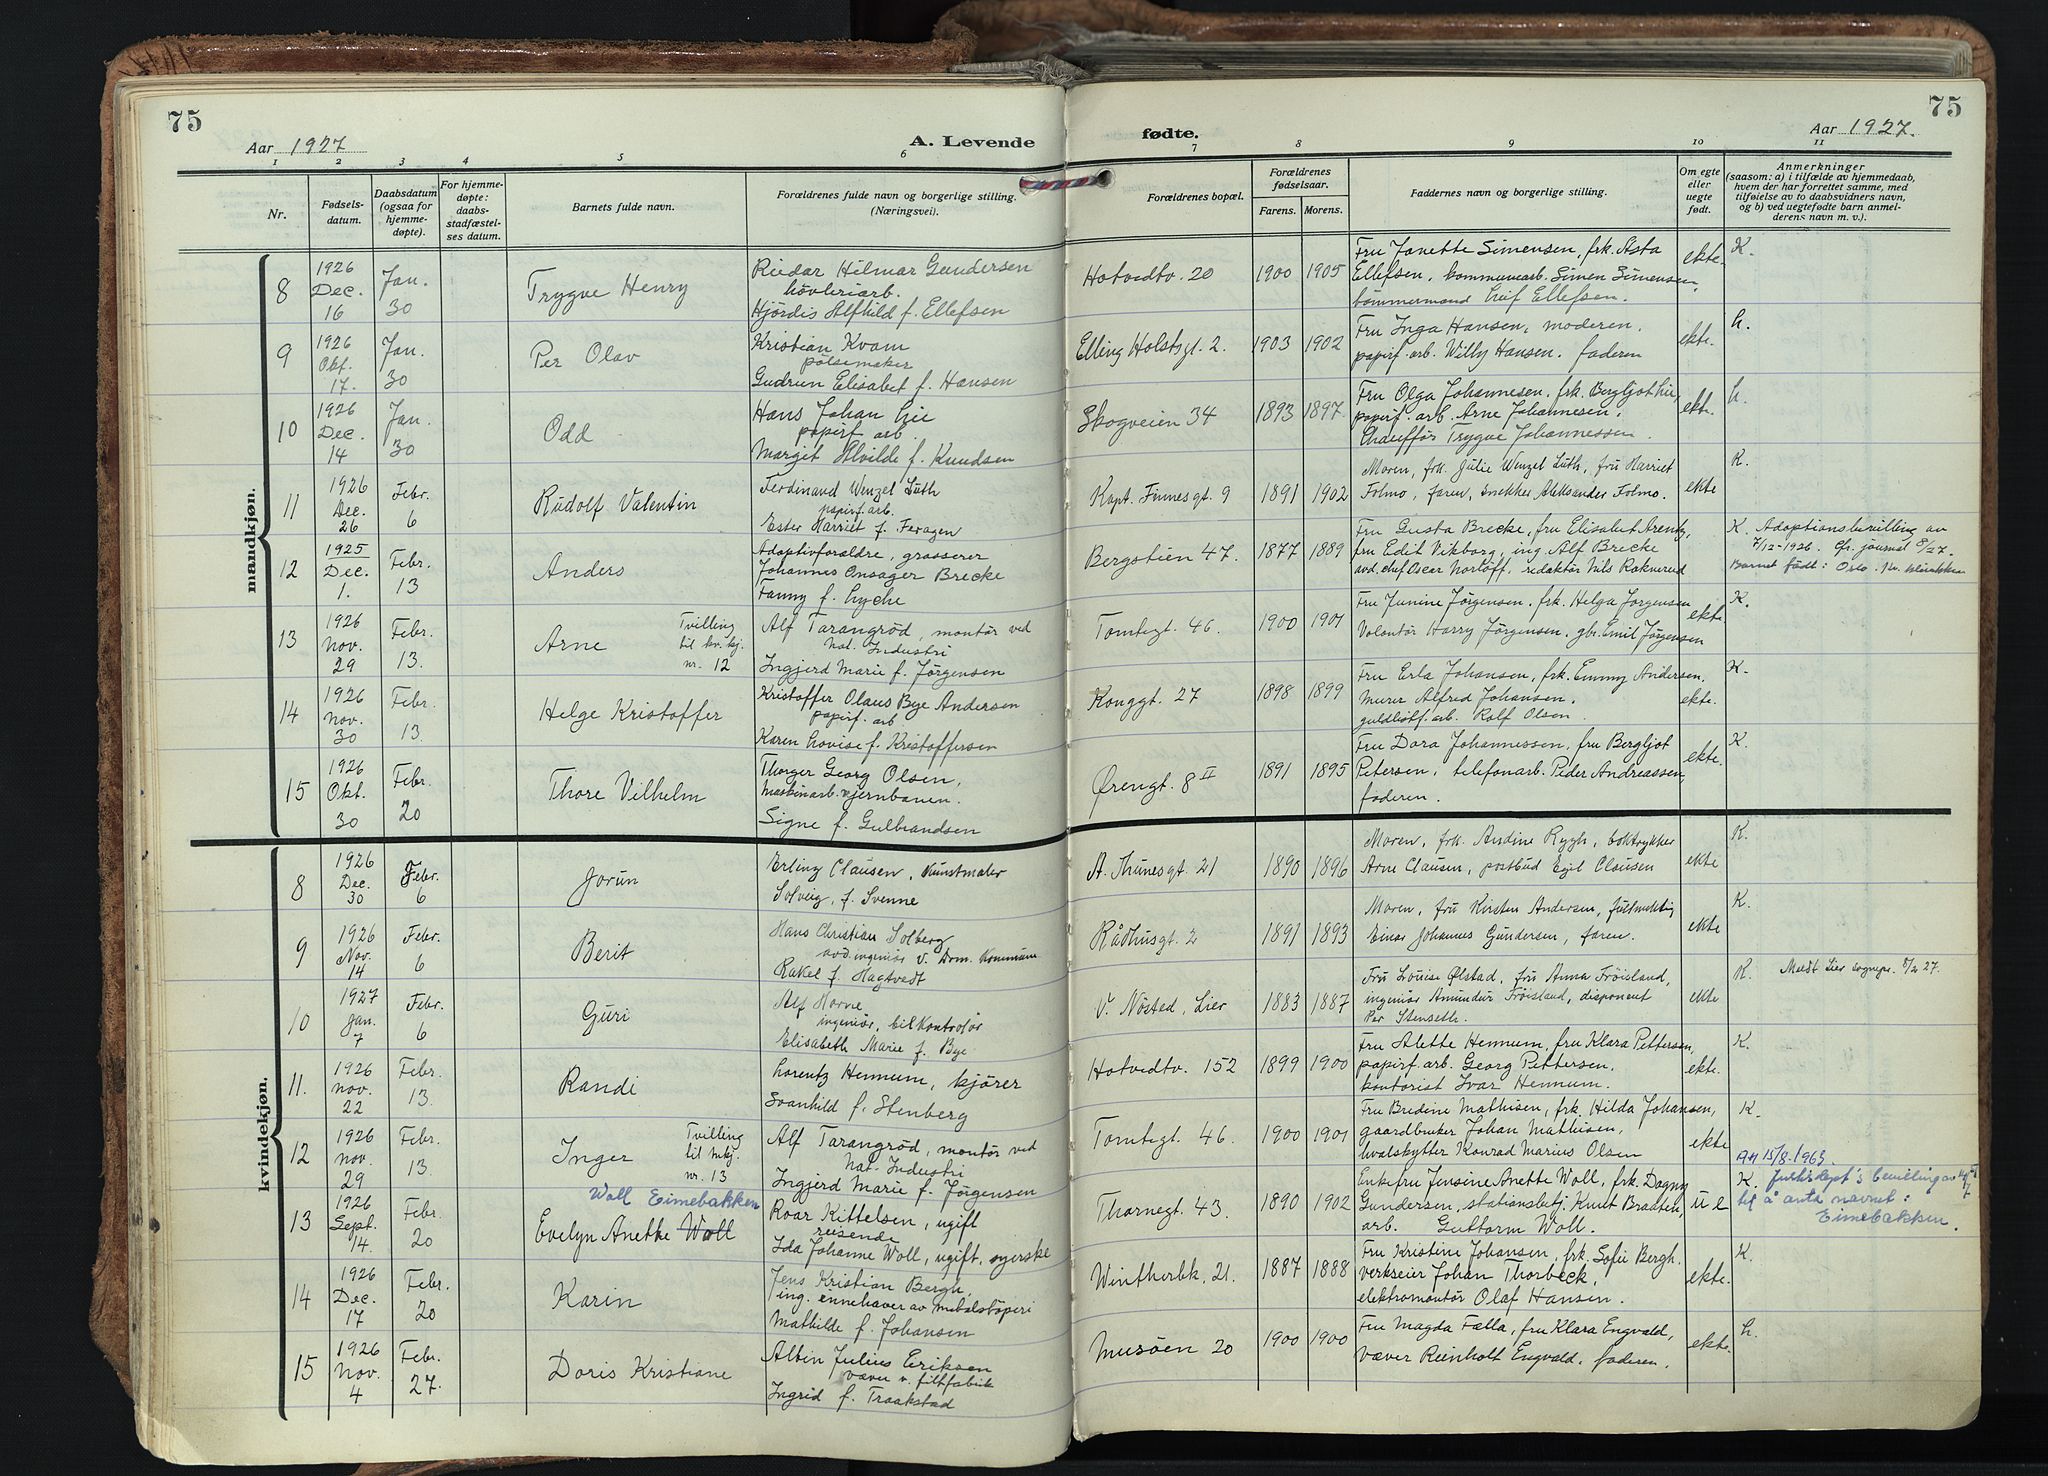 75
Aar 1927
A. Levende
fødte.
75
Aar 1927.
1 2 3 4 5 6 7 8 9 10 11
Nr.
Fødsels-
datum.
Daabsdatum
(ogsaa for
hjemme-
døpte).
For hjemme-
døpte:
daabs-
stadfæstel-
ses datum.
Barnets fulde navn.
Forældrenes fulde navn og borgerlige stilling.
(Næringsvei).
Forældrenes bopæl.
Forældrenes
fødselsaar.
Farens. Morens.
Faddernes navn og borgerlige stilling.
Om egte
eller
uegte
født.
Anmerkninger
(saasom: a) i tilfælde av hjemmedaab,
hvem der har forrettet samme, med
tilføielse av to daabsvidners navn,
og b) ved uegtefødte barn anmel-
derens navn m. v.).
mandkjøn.
8
1926
Dec.
16
Jan.
30
Trygve Henry
Reidar Hilmar Gundersen
høvleriarb.
Hjördis Alfhild f. Ellefsen
Hotvedtv. 20
1900 1905
Fru Janette Simensen, frk. Asta
Ellefsen, kommunearb. Simen Simensen,
tömmermand Leif Ellefsen.
ekte.
K.
9
1926
Okt.
17.
Jan.
30
Per Olav
Kristian Kvam
pölsemaker
Gudrun Elisabet f. Hansen
Elling Holstsgt. 2.
1903 1902
Fru Inga Hansen, moderen.
papirf. arb. Willy Hansen. faderen
ekte.
L.
10
1926
Dec.
14
Jan.
30
Odd
Hans Johan Lie
papirf. arb.
Margit Alvilde f. Knudsen
Skogveien 34
1893 1897
Fru Olga Johannesen, frk. Bergljot Lie,
papirf. arb. Arne Johannesen.
Chauffør Trygve Johannessen
ekte.
L.
11
1926
Dec.
26
Febr.
6
Rudolf Valentin
Ferdinand Wenzel Luth
papirf. arb.
Ester Harriet f. Feragen
Kapt. Finnesgt. 9
1891 1902
Moren, frk. Julie Wenzel Luth, fru Harriet
Folmo, faren, snekker Aleksander Folmo.
ekte
K.
12
1925
Dec.
1.
Febr.
13
Anders
Adoptivforældre, grosserer
Johannes Onsager Brecke
Fanny f. Lyche
Bergstien 47.
1877 1889
Fru Gusta Brecke, fru Elisabet Arentz,
fru Edit Vikborg, ing. Alf Brecke
avd. chef Oscar Norløff, redaktør Nils Rakverud
K. Adoptionsbevilling av
7/12-1926. Cfr. journal 8/27.
Barnet født: Oslo.
13
1926
Nov.
29
Febr.
13.
Arne
Tvilling
til kv. kj.
nr. 12
Alf Tarangröd, montör ved
Nat. Industri
Ingjerd Marie f. Jørgensen
Tomtegt. 46.
1900 1901
Fru Junine Jörgensen. frk. Helga Jorgensen
Volontör Harry Jörgensen. gbr. Emil Jörgensen
ekte.
K.
14
1926
Nov.
30
Febr.
13.
Helge Kristoffer
Kristoffer Olaus Bye Andersen
papirf. arb
Karen Lovise f. Kristoffersen
Konggt. 27
1898 1899
Fru Erla Johansen, frk. Emmy Andersen,
murer Alfred Johansen.
guldlistf. arb. Rolf Olsen.
ekte.
K.
15
1926
Okt.
30
Febr.
20
Thore Vilhelm
Thorger Georg Olsen,
Maskinarb. v jernbanen.
Signe f. Gulbrandsen
Ørengt. 8 II
1891 1895
Fru Dora Johannessen, fru Bergljot
Petersen, telefonarb. Peder Andreassen,
faderen.
ekte.
K.
kvindekjøn.
8
1926
Dec.
30
Febr.
6
Jorun
Erling Clausen, Kunstmaler
Solveig, f. Svenne
A. Thunesgt. 21
1890 1896
Moren, frk. Andine Rygh, boktrykker
Arne Clausen, postbud Egil Clausen
ekte
K.
9
1926
Nov.
14
Febr.
6
Berit
Hans Christian Solberg
avd. ingeniør v. Drm. Kommune
Rakel f. Hagtvedt
Rådhusgt. 2
1891 1893
Moren, fru Kirsten Andersen, fullmektig
Einar Johannes Gundersen, faren.
ekte
K.
10
1927
Jan.
7
Febr.
6
Guri
Alf Horne,
ingeniør, bilkontrolør
Elisabeth Marie f. Bye
V. Nøsted, Lier
1883 1887
Fru Louise Ølstad, fru Anna Frøisland,
ingeniør Amundur Frøisland, disponent
Per Stenseth.
ekte
K. Meldt Lier sognepr. 8/2 27.
11.
1926
Nov.
22
Febr.
13.
Randi
Lorentz Hennum, kjörer
Svanhild f. Stenberg
Hotvedtv. 152
1899 1900
Fru Alette Hennum, fru Klara Pettersen,
papirf. arb. Georg Pettersen,
kontorist Ivar Hennum.
ekte.
K.
12
1926
Nov.
29
Febr.
13.
Inger
Tvilling
til mkj.
nr. 13
Alf Tarangröd, montör ved
Nat. Industri
Ingjerd Marie f. Jørgensen
Tomtegt. 46.
1900 1901
Fru Bredine Mathisen, frk. Hilda Johansen,
gaardbruker Johan Mathisen,
hvalskytter Konrad Marius Olsen
ekte
K.
13
1926
Sept.
14.
Febr.
20
Woll Eimebakken
Evelyn Anette Woll
Roar Kittelsen, ugift
reisende
Ida Johanne Woll, ugift. syerske
Thornegt. 43.
1890 1902
Enkefru Jensine Anette Woll, frk. Dagny
Gundersen, stationsbetj. Knut Braaten,
arb. Guttorm Woll.
u e
15/8.1963
K. Justisdept's bevilling av
til å anta navnet:
Eimebakken.
14
1926
Dec.
17
Febr.
20
Karin
Jens Kristian Bergh,
ing. innehaver av metalstöperi
Mathilde f. Johansen
Wintherbk. 21.
1887 1888
Fru Kristine Johansen, frk. Sofie Bergh.
verkseier Johan Thorbeck,
elektromontör Olaf Hansen.
ekte.
K.
15
1926
Nov.
4
Febr.
27.
Doris Kristiane
Albin Julius Eriksen
væver v. filtfabrik
Ingrid f. Traakstad
Musöen 20
1900 1900
Fru Magda Falla, fru Klara Engvald,
væver Reinholt Engvald. faderen.
ekte.
L.